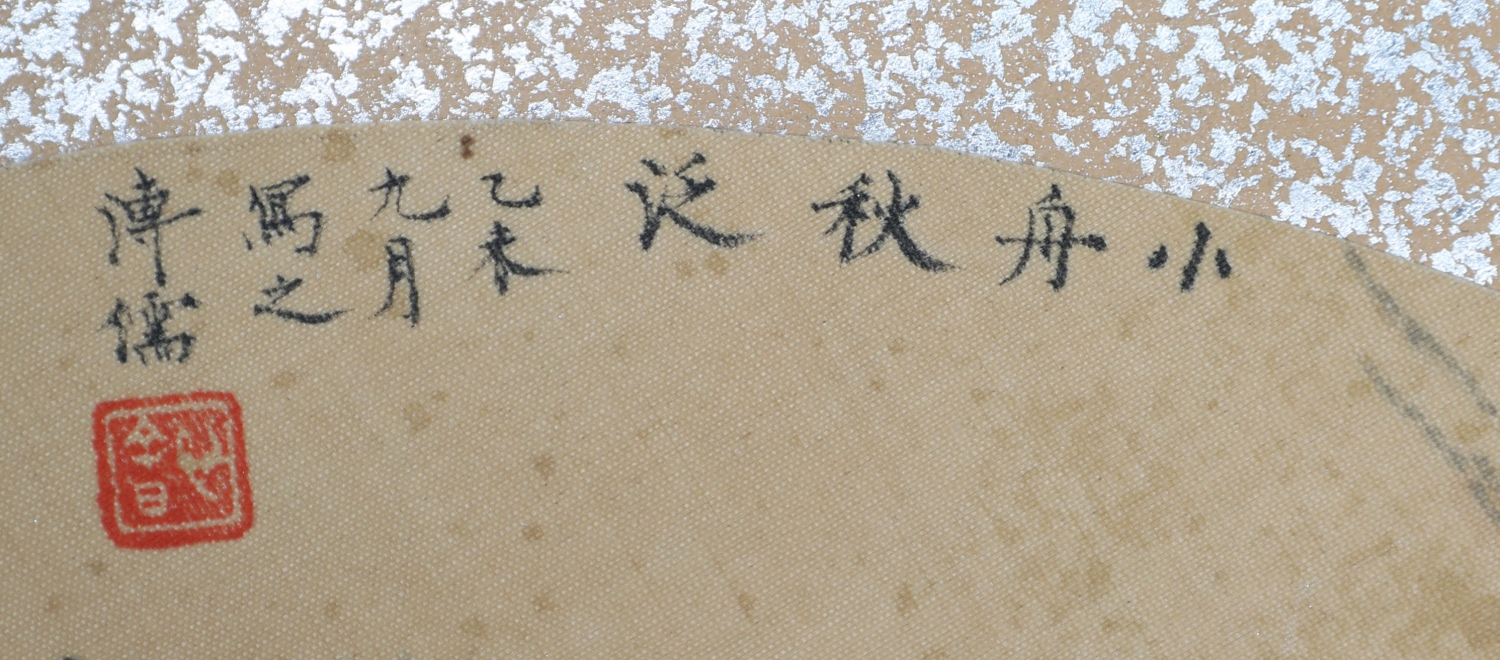 小
舟
秋
泛
乙未
九月
寫之
溥儒